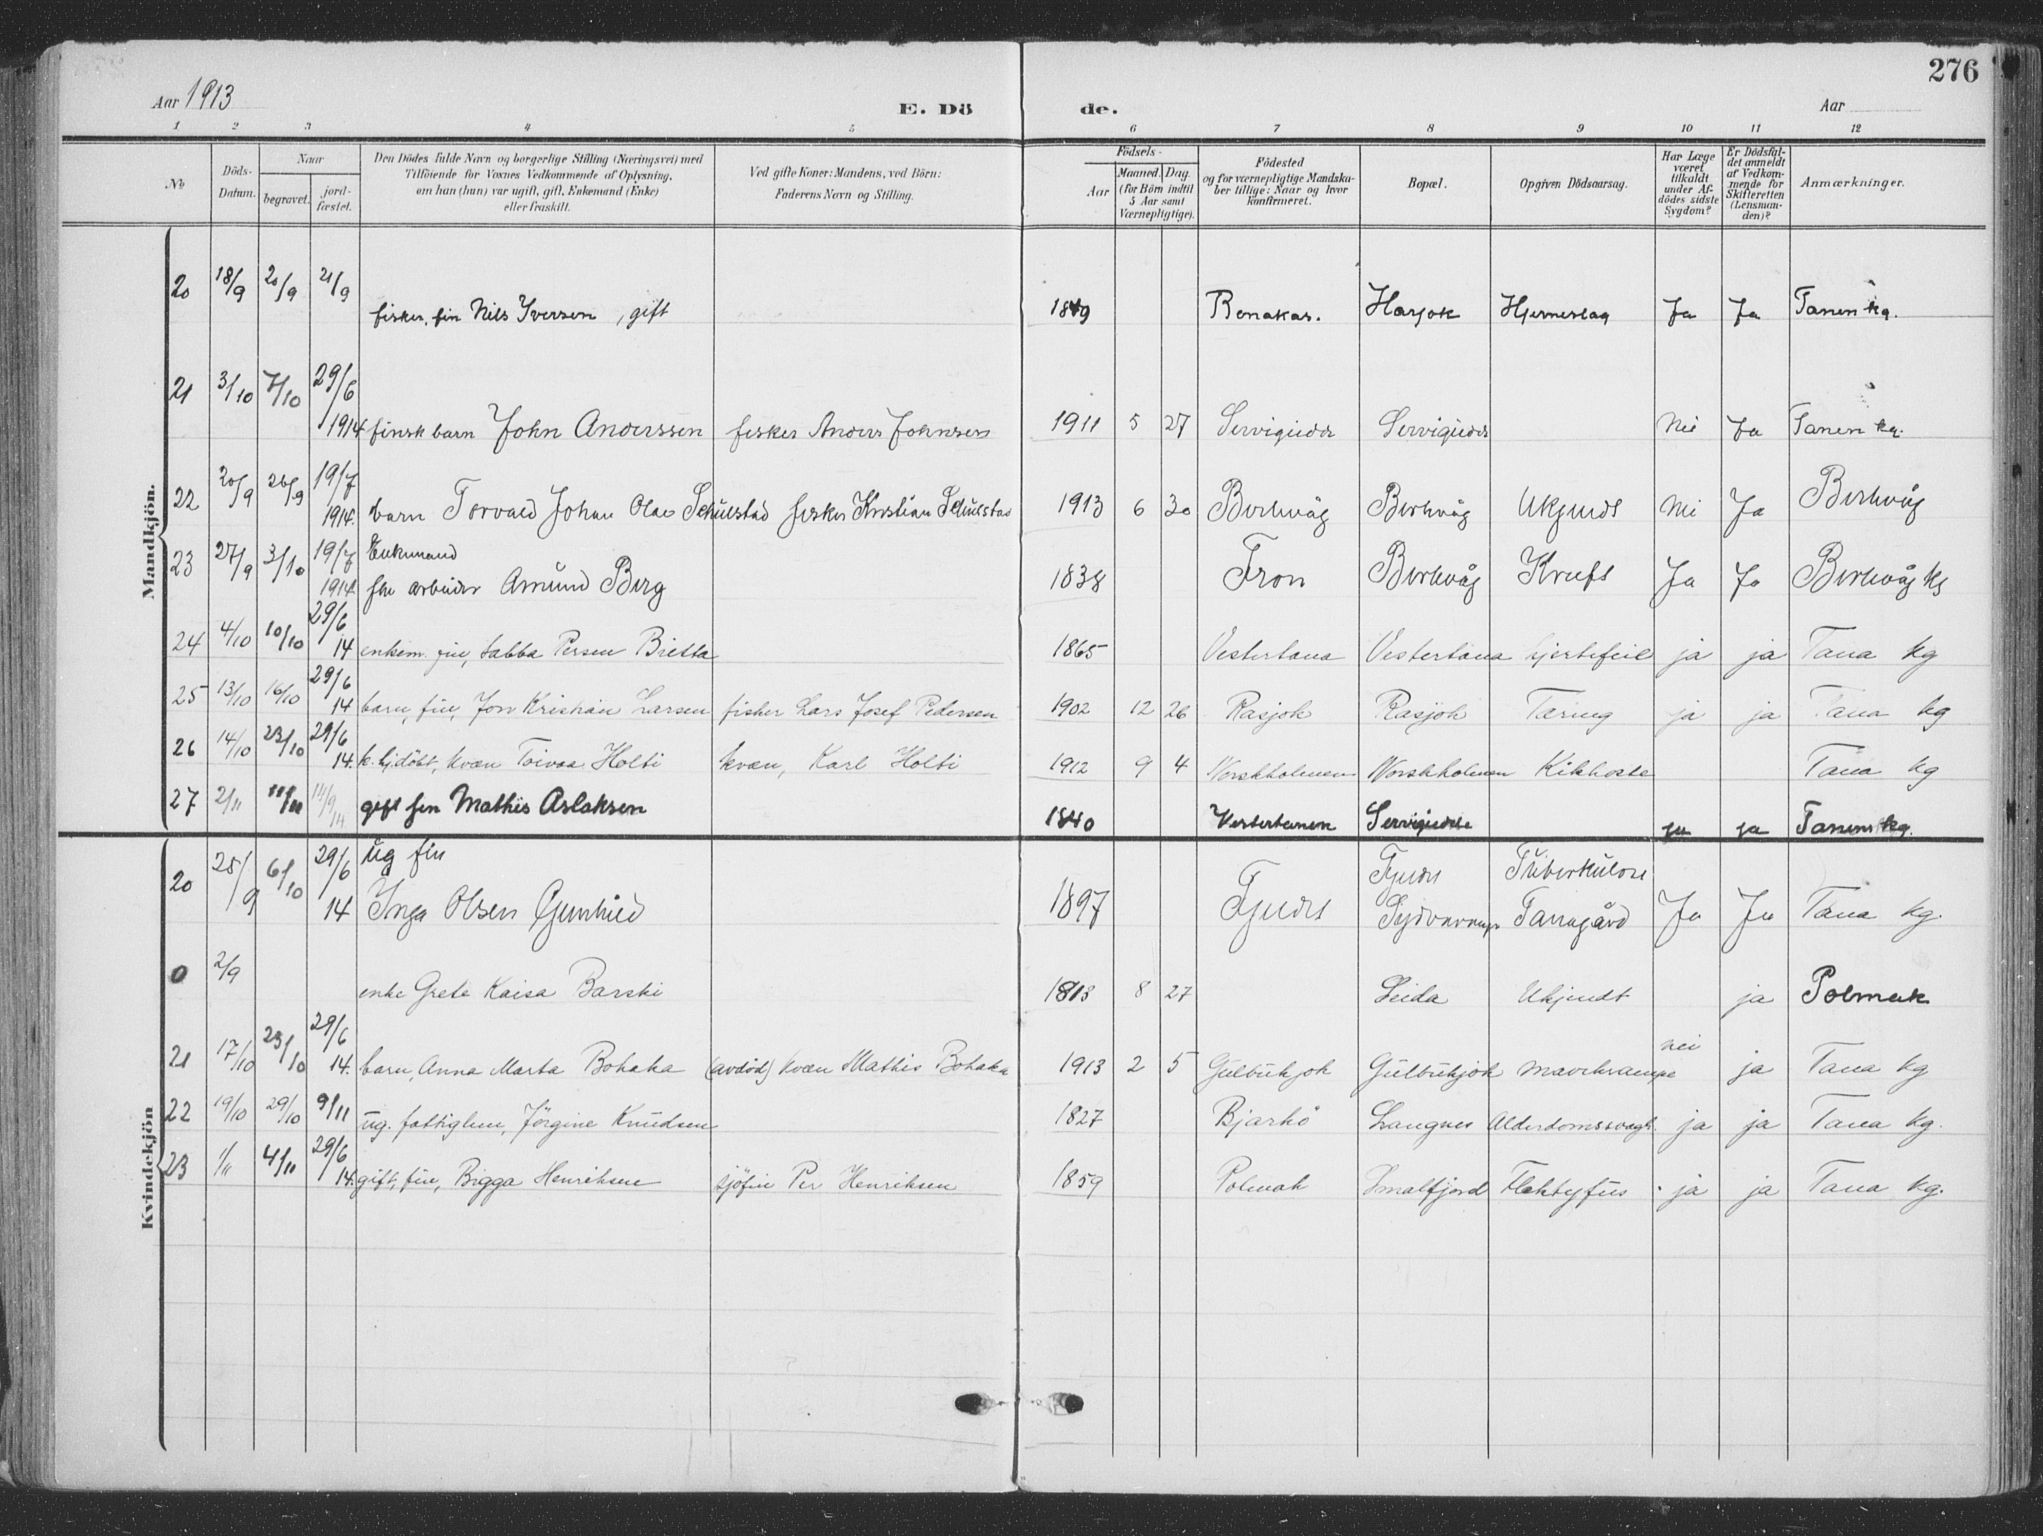 276
Aar 1913
E. Dö de.
Aar
1 2 3 4 5 6 7 8 9 10 11 12
No
Döds-Datum.
Naar
begravet.
jord-fæstet.
Den Dödes fulde Navn og borgerlige Stilling (Næringsvei) med
Tilföiende for Voxnes Vedkommende af Oplysning,
om han (hun) var ugift, gift, Enkemand (Enke)
eller fraskilt.
Ved gifte Koner: Mandens, ved Börn:
Faderens Navn og Stilling.
Födsels-
Aar
Maaned. Dag.
(for Börn indtil
5 Aar samt
Værnepligtige).
Födested
og for værnepligtige Mandska-
ber tillige: Naar og hvor
konfirmeret.
Bopæl.
Opgiven Dödsaarsag.
Har Læge
været
tilkaldt
under Af-
dödes sidste
Sygdom?
Er Dödsfal-
det anmeldt
af Vedkom-
mende for
Skifteretten
(Lensman-
den)?
Anmærkninger.
Mandkjön.
20 18/9 20/9 21/9 fisker, fin Nils Iversen, gift 1849 Bonakas. Harjok Hjerneslag Ja Ja Tanen kg.
21 3/10 7/10 29/6 1914 finsk barn John Anderssen fisker Anders Johnsen 1911 5 27 Nei Ja Tanen kg.
22 20/9 26/9 19/7 1914. barn Torvald Johan Olav Schulstad fisker Kristian Schulstad 1913 6 30 Berlevåg Berlevåg Ukjendt Nei Ja Berlevåg
23 27/9 3/10 19/7 1914 Enkemand
arbeider Amund Berg 1838 Fron Berlevåg Kreft Ja Ja Berlevåg kg
24 4/10 10/10 29/6 14 enkem. fin, Sabba Persen Bietta 1865 Vestertana Vestertana hjertefeil ja ja Tana kg
25 13/10 16/10 29/6 14 barn, fin, Jon Kristian Larsen fisker Lars Josef Pedersen 1902 12 26 Rasjok Rasjok Tæring ja ja Tana kg
26 14/10 23/10 29/6 14. hjdöbt, kvæn Toivaa Holti kvæn, Karl Holti 1912 9 4 Norskholmen Norskholmen Kikhoste Tana kg
27 2/11 11/11 11/9 14 gift fin Mathis Aslaksen 1840 Vestertanen ja ja Tanens kg.
Kvindekjön
20 25/9 6/10 29/6 14 ug fin
Inga Olsen Gunhild 1897 Sydvaranger Tuberkulose Ja Ja Tana kg.
0 2/9 enke Grete Kaisa Barski 1813 8 27 Seida Ukjendt ja Polmak
21 17/10 23/10 29/6 14. barn, Anna Marta Bohaka (avdöd) kvæn Mathis Bohaka 1913 2 5 Gulbukjok Gulbukjok mavekrampe nei ja Tana kg
22 19/10 29/10 9/11 ug. fattiglem, Jörgine Knudsen 1827 Bjarkö Langnes Alderdomssvagh. ja ja Tana kg.
23 1/11 4/11 29/6 14. gift, fin, Bigga Henriksen sjöfin Per Henriksen 1859 Polmak Smalfjord Flektyfus ja ja Tana kg.